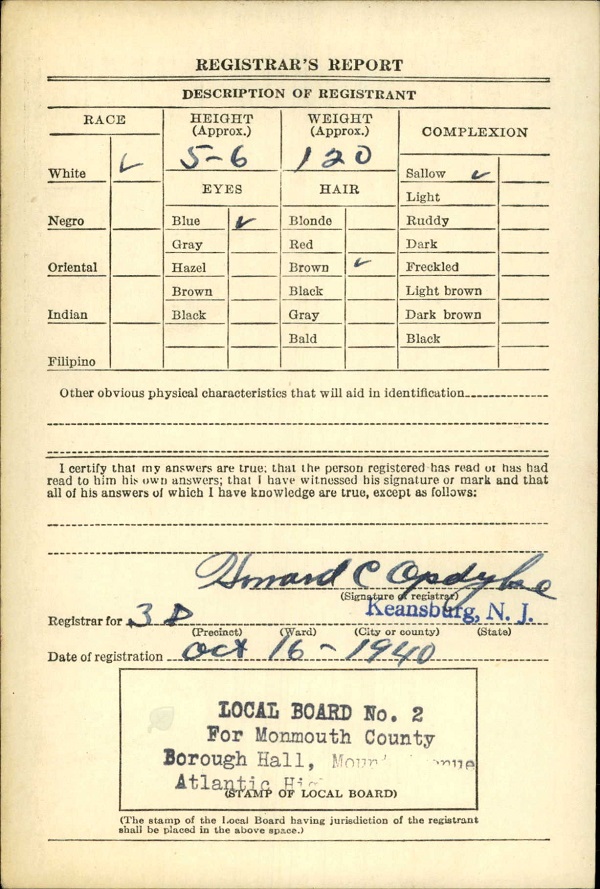 REGISTRAR'S REPORT
DESCRIPTION OF REGISTRANT
RACE HEIGHT (Approx.) WEIGHT (Approx.) COMPLEXION
5-6 120
White ✓
Sallow ✓
EYES HAIR
Light
Negro Blue ✓ Blonde Ruddy
Gray Red Dark
Oriental Hazel Brown ✓ Freckled
Brown Black Light brown
Indian Black Gray Dark brown
Bald Black
Filipino
Other obvious physical characteristics that will aid in identification
I certify that my answers are true; that the person registered has read or has had
read to him his own answers; that I have witnessed his signature or mark and that
all of his answers of which I have knowledge are true, except as follows:
Howard C Opdyke
(Signature of registrar)
Registrar for 3 D Keansburg, N. J.
(Precinct) (Ward) (City or county) (State)
Date of registration Oct 16 - 1940
LOCAL BOARD No. 2
For Monmouth County
Borough Hall,
Atlantic
(STAMP OF LOCAL BOARD)
(The stamp of the Local Board having jurisdiction of the registrant
shall be placed in the above space.)